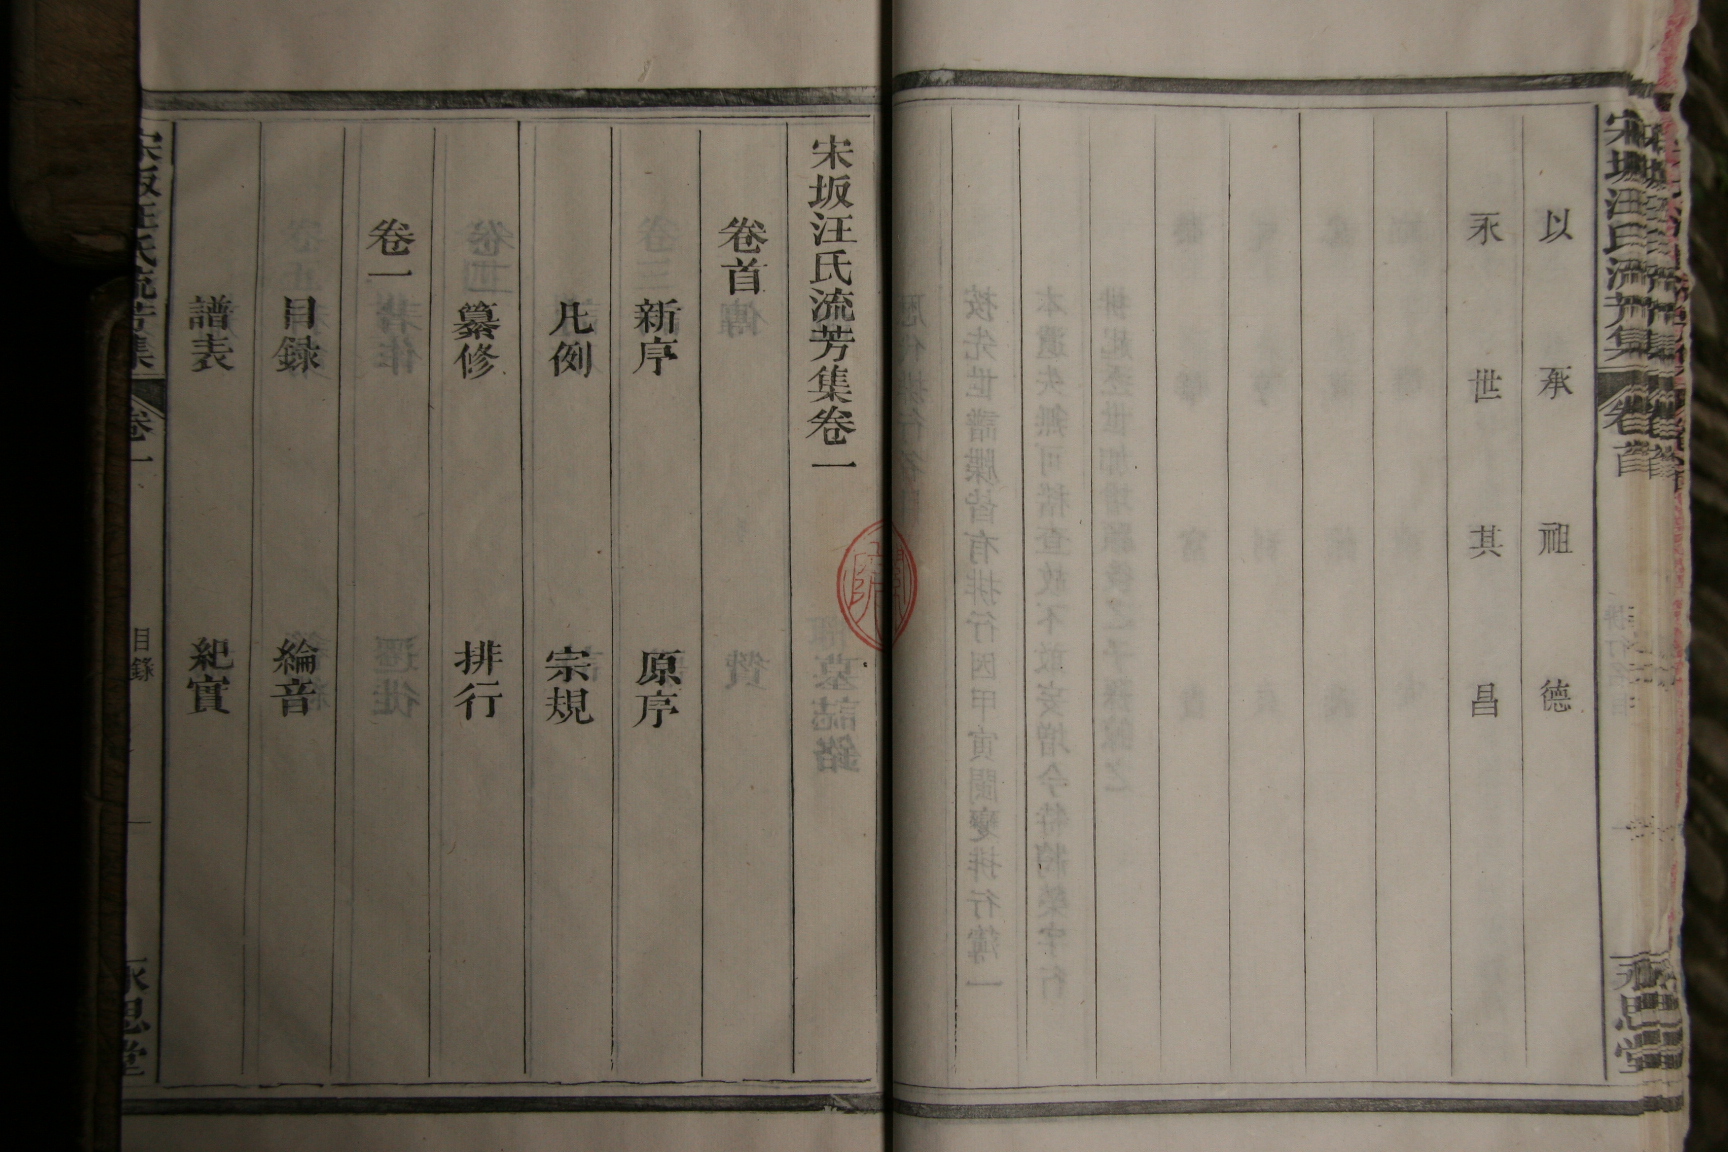 宋坂汪氏流芳集 卷首
永思堂
以 承 祖 德
永 世 其 昌
宋坂汪氏流芳集卷一
卷首
新序 原序
凡例 宗規
纂修 排行
卷一
目録 綸音
譜表 紀實
宋坂汪氏流芳集 卷一 目錄 一 永思堂